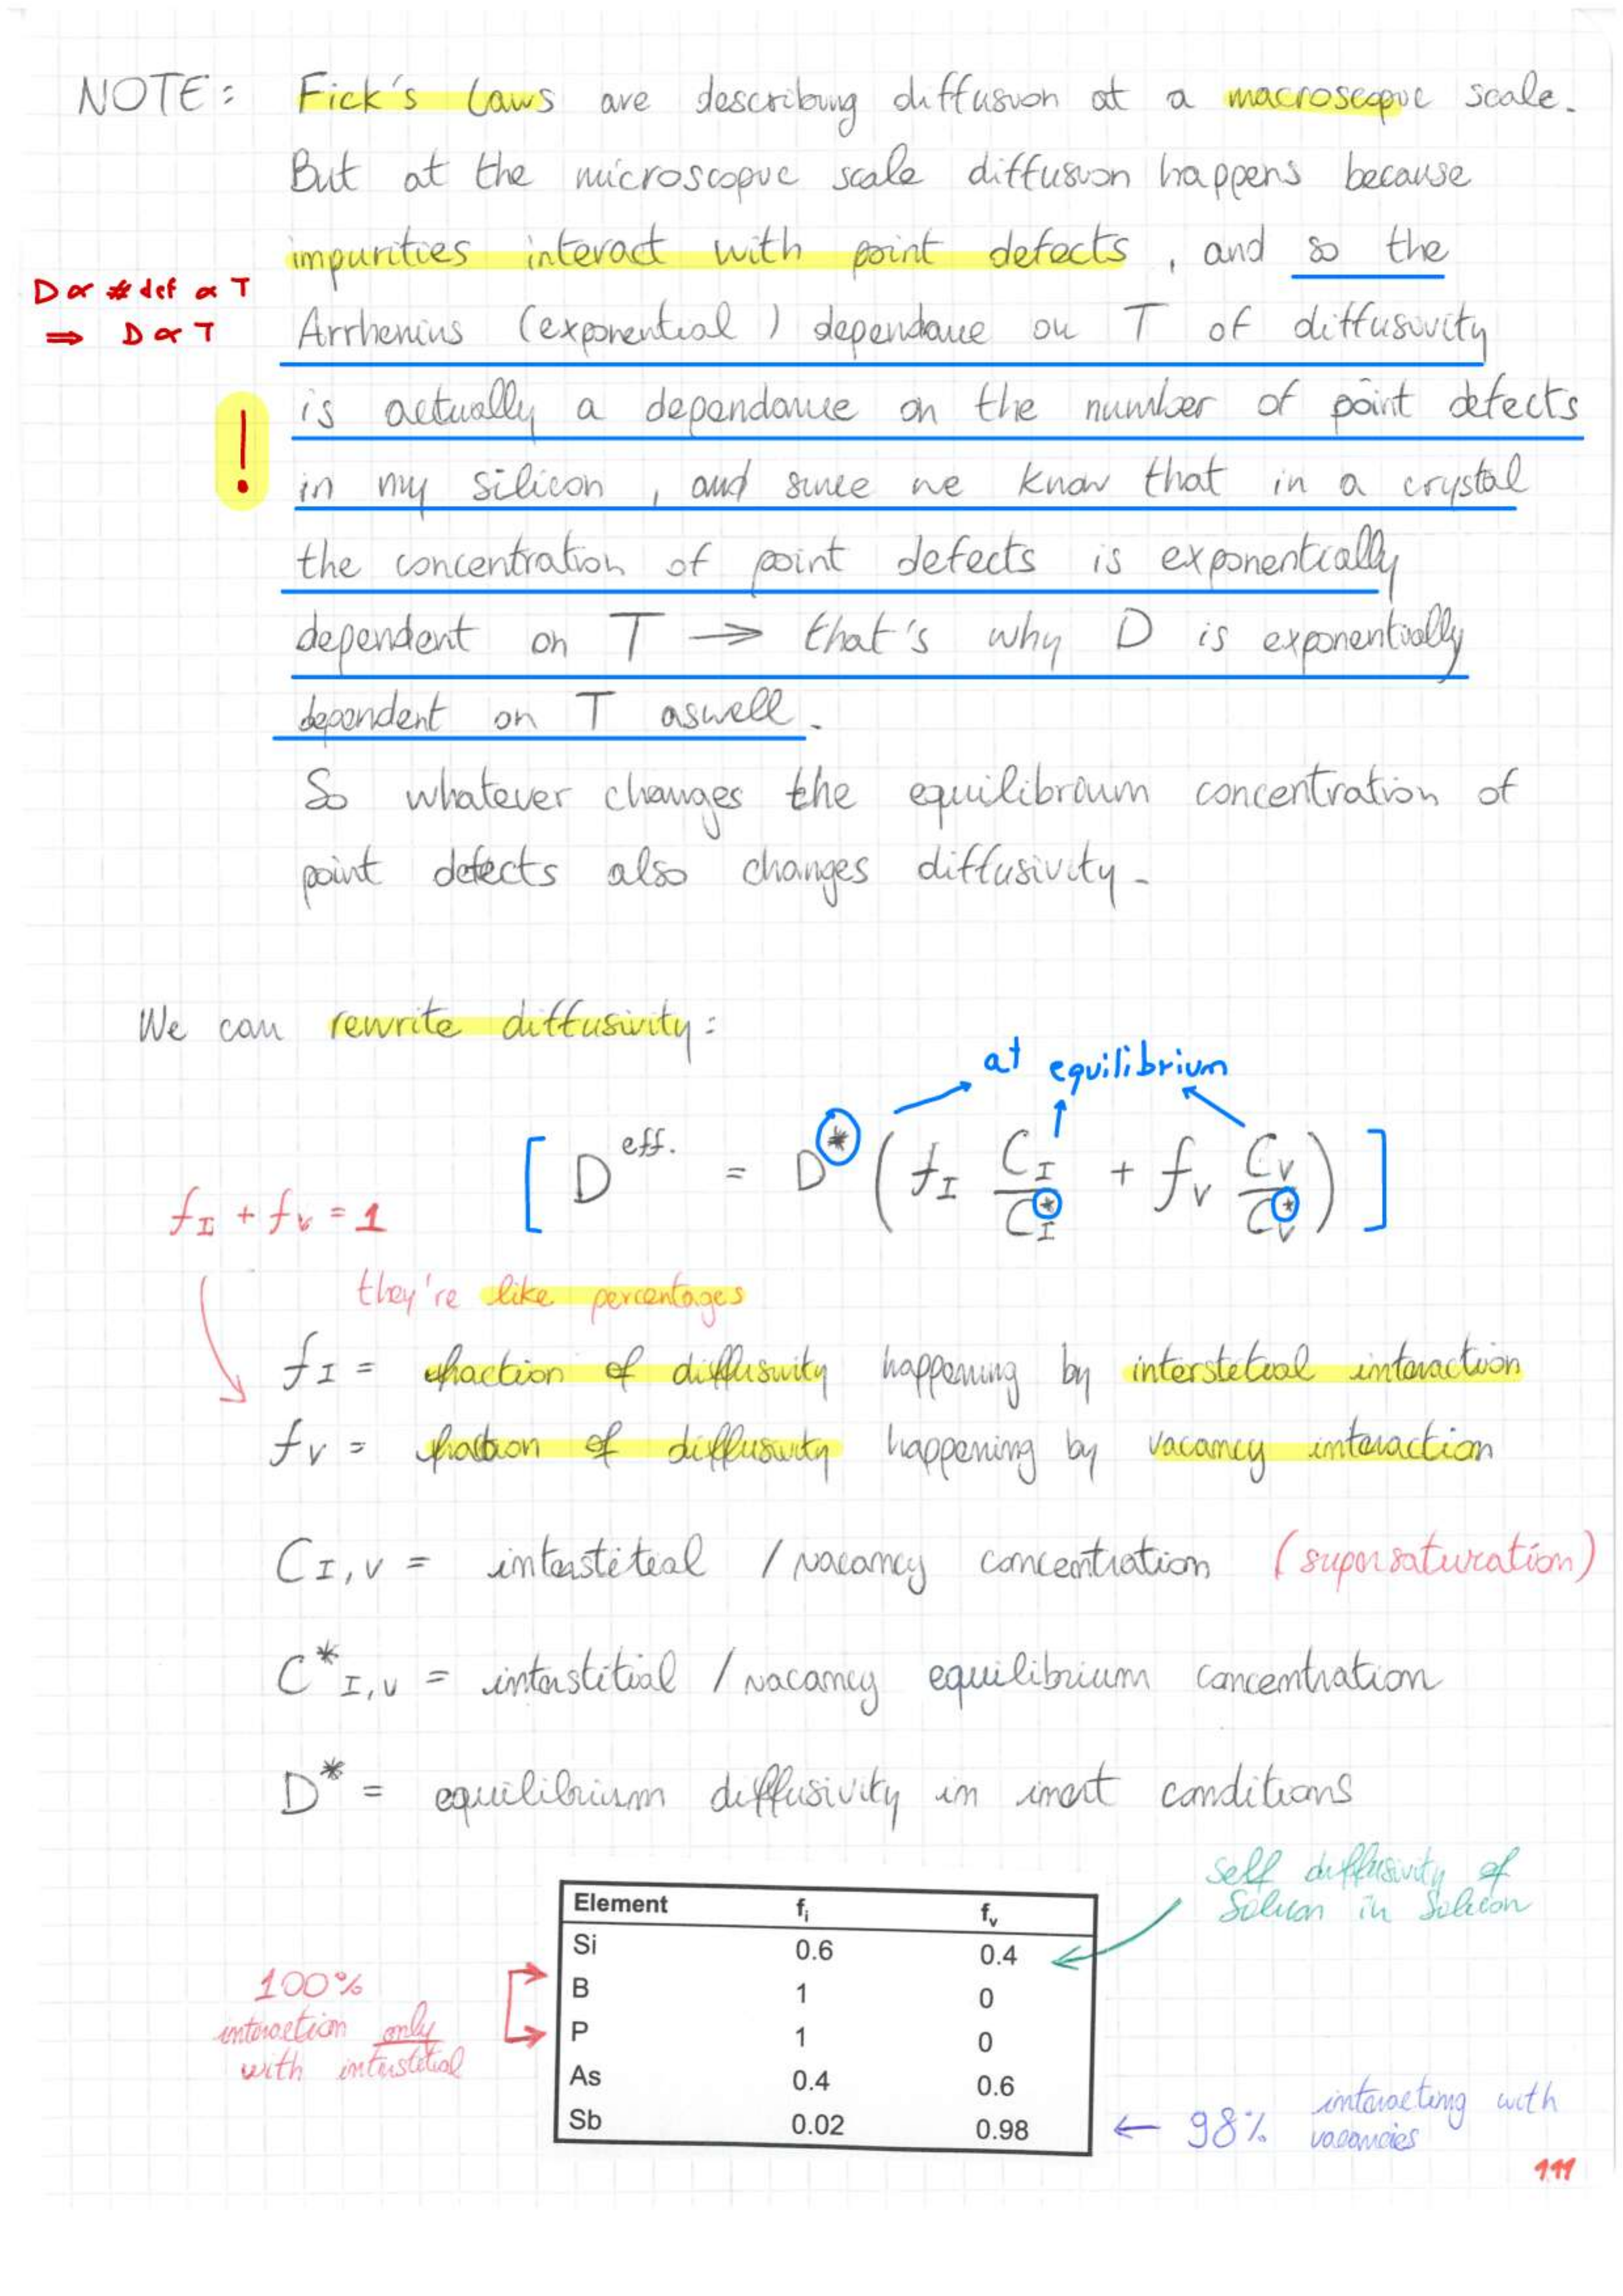 NOTE: Fick's Laws are describing diffusion at a macroscopic scale.
But at the microscopic scale diffusion happens because
impurities interact with point defects, and so the
D ∝ # def ∝ T
⇒ D ∝ T
Arrhenius (exponential) dependance on T of diffusivity
! is actually a dependance on the number of point defects
in my silicon, and since we know that in a crystal
the concentration of point defects is exponentially
dependent on T → that's why D is exponentially
dependent on T aswell.
So whatever changes the equilibrium concentration of
point defects also changes diffusivity.
We can rewrite diffusivity:
at equilibrium
[ D^eff. = D^* ( f_I C_I / C_I^* + f_V C_V / C_V^* ) ]
f_I + f_V = 1
they're like percentages
f_I = fraction of diffusivity happening by interstetial interaction
f_V = fraction of diffusivity happening by vacancy interaction
C_I,V = interstitial / vacancy concentration (supersaturation)
C^*_I,V = interstitial / vacancy equilibrium concentration
D^* = equilibrium diffusivity in inert conditions
self diffusivity of
Silicon in Silicon
Element f_i f_v
Si 0.6 0.4
B 1 0
P 1 0
As 0.4 0.6
Sb 0.02 0.98
100%
interaction only
with interstitial
← 98% interacting with
vacancies
111